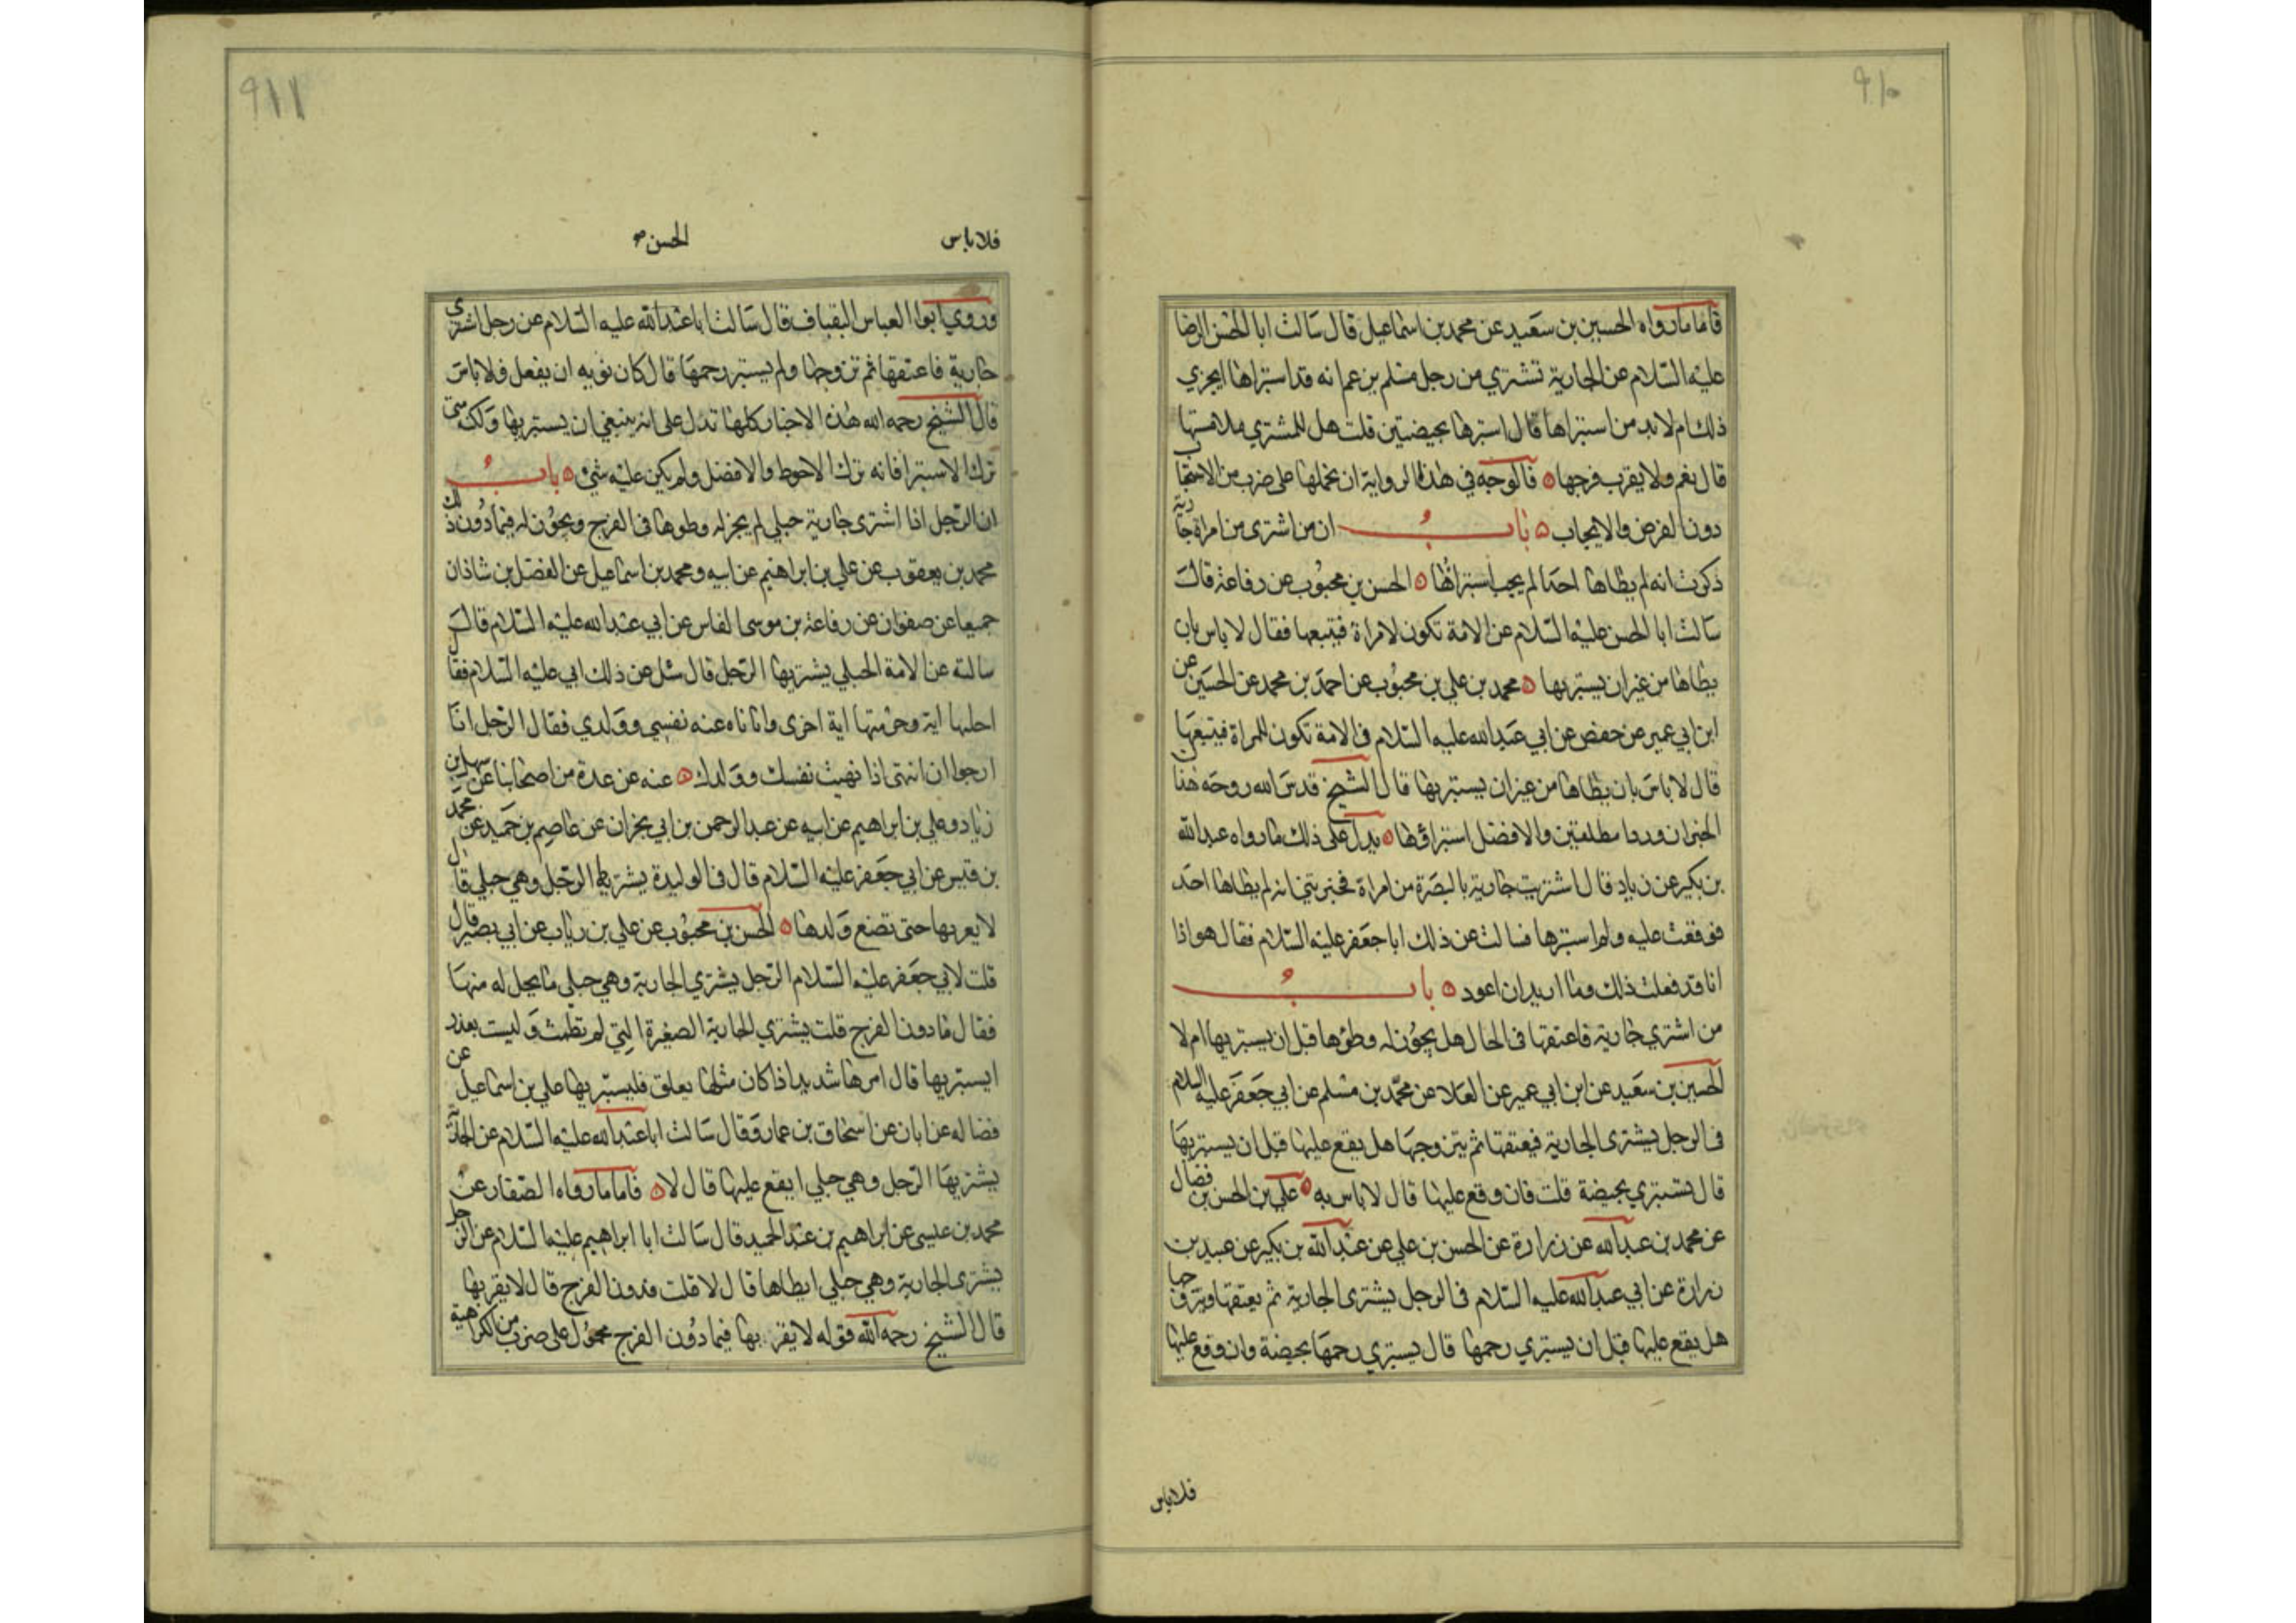 ٩١٠
فاما ما رواه الحسين بن سعيد عن محمد بن اسماعيل قال سالت ابا الحسن الرضا
عليه السلام عن الجارية تشتري من رجل مسلم يزعم انه قد استبراها ايجزي
ذلك ام لابد من استبراها قال استبرها بحيضتين قلت هل للمشتري ملامستها
قال نعم ولا يقرب فرجها ه فالوجه في هذه الرواية ان نحملها على ضرب من الاستحباب
دون الفرض والايجاب ه باب ان من اشترى من امراة جارية
ذكرت انه لم يطاها احد لم يجب استبراؤها ه الحسن بن محبوب عن رفاعة قال
سالت ابا الحسن عليه السلام عن الامة تكون لامراة فتبيعها فقال لا باس بان
يطاها من غير ان يستبريها ه محمد بن علي بن محبوب عن احمد بن محمد عن الحسين عن
ابن ابي عمير عن حفص عن ابي عبد الله عليه السلام في الامة تكون للمراة فتبيعها
قال لا باس بان يطاها من غير ان يستبريها قال الشيخ قدس الله روحه هذان
الخبران وردا مطلقين والافضل استبراؤها ه يدل على ذلك ما رواه عبد الله
بن بكير عن زياد قال اشتريت جارية بالبصرة من امراة فخبرتني انه لم يطاها احد
فوقعت عليه ولم استبرها فسالت عن ذلك ابا جعفر عليه السلام فقال هو اذا
انا قد فعلت ذلك وما اريد ان اعود ه باب
من اشتري جارية فاعتقها في الحال هل يجوز له وطؤها قبل ان يستبريها ام لا
الحسين بن سعيد عن ابن ابي عمير عن العلا عن محمد بن مسلم عن ابي جعفر عليه السلام
في الرجل يشترى الجارية فيعتقها ثم يتزوجها هل يقع عليها قبل ان يستبريها
قال يستبري بحيضة قلت فان وقع عليها قال لا باس به ه علي بن الحسن بن فضال
عن محمد بن عبد الله عن زرارة عن الحسن بن علي عن عبد الله بن بكير عن عبيد بن
زرارة عن ابي عبد الله عليه السلام في الرجل يشترى الجارية ثم يعتقها ويتزوجها
هل يقع عليها قبل ان يستبري رحمها قال يستبري رحمها بحيضة وان وقع عليها
فلا باس
٩١١
فلا باس الحسن
وروي ابوا العباس البقباق قال سالت ابا عبد الله عليه السلام عن رجل اشترى
جارية فاعتقها ثم تزوجها ولم يستبر رحمها قال كان نوبه ان يفعل فلا باس
قال الشيخ رحمه الله هذه الاخبار كلها تدل على انه ينبغي ان يستبريها ولكن متى
ترك الاستبرا فانه ترك الاحوط والافضل ولم يكن عليه شئ ه باب
ان الرجل اذا اشترى جارية حبلي لم يجز له وطوها في الفرج ويجوز له فيما دون ذلك
محمد بن يعقوب عن علي بن ابراهيم عن ابيه ومحمد بن اسماعيل عن الفضل بن شاذان
جميعا عن صفوان عن رفاعة بن موسى النخاس عن ابي عبد الله عليه السلام قال
سالته عن الامة الحبلي يشتريها الرجل قال سئل عن ذلك ابي عليه السلام فقال
احلها اية وحرمتها اية اخرى وانا ناه عنه نفسي وولدي فقال الرجل انا
ارجوا ان انتهى اذا نهيت نفسك وولدك ه عنه عن عدة من اصحابنا عن سهل بن
زياد وعلي بن ابراهيم عن ابيه عن عبد الرحمن بن ابي نجران عن عاصم بن حميد عن محمد
بن قيس عن ابي جعفر عليه السلام قال في الوليدة يشتريها الرجل وهي حبلي قال
لا يقربها حتى تضع ولدها ه الحسن بن محبوب عن علي بن رياب عن ابي بصير قال
قلت لابي جعفر عليه السلام الرجل يشتري الجارية وهي حبلي ما يحل له منها
فقال ما دون الفرج قلت يشتري الجارية الصغيرة التي لم تطمث وليست بعذر
ايستبريها قال امرها شديد اذا كان مثلها يعلق فليستبريها علي بن اسماعيل عن
فضاله عن ابان عن اسحاق بن عمار وقال سالت ابا عبد الله عليه السلام عن الجارية
يشتريها الرجل وهي حبلي ايقع عليها قال لا ه فاما ما رواه الصفار عن
محمد بن عيسى عن ابراهيم بن عبد الحميد قال سالت ابا ابراهيم عليه السلام عن الرجل
يشترى الجارية وهي حبلي ايطاها قال لا قلت فدون الفرج قال لا يقربها
قال الشيخ رحمه الله فقوله لا يقربها فيما دون الفرج محمول على ضرب من الكراهية